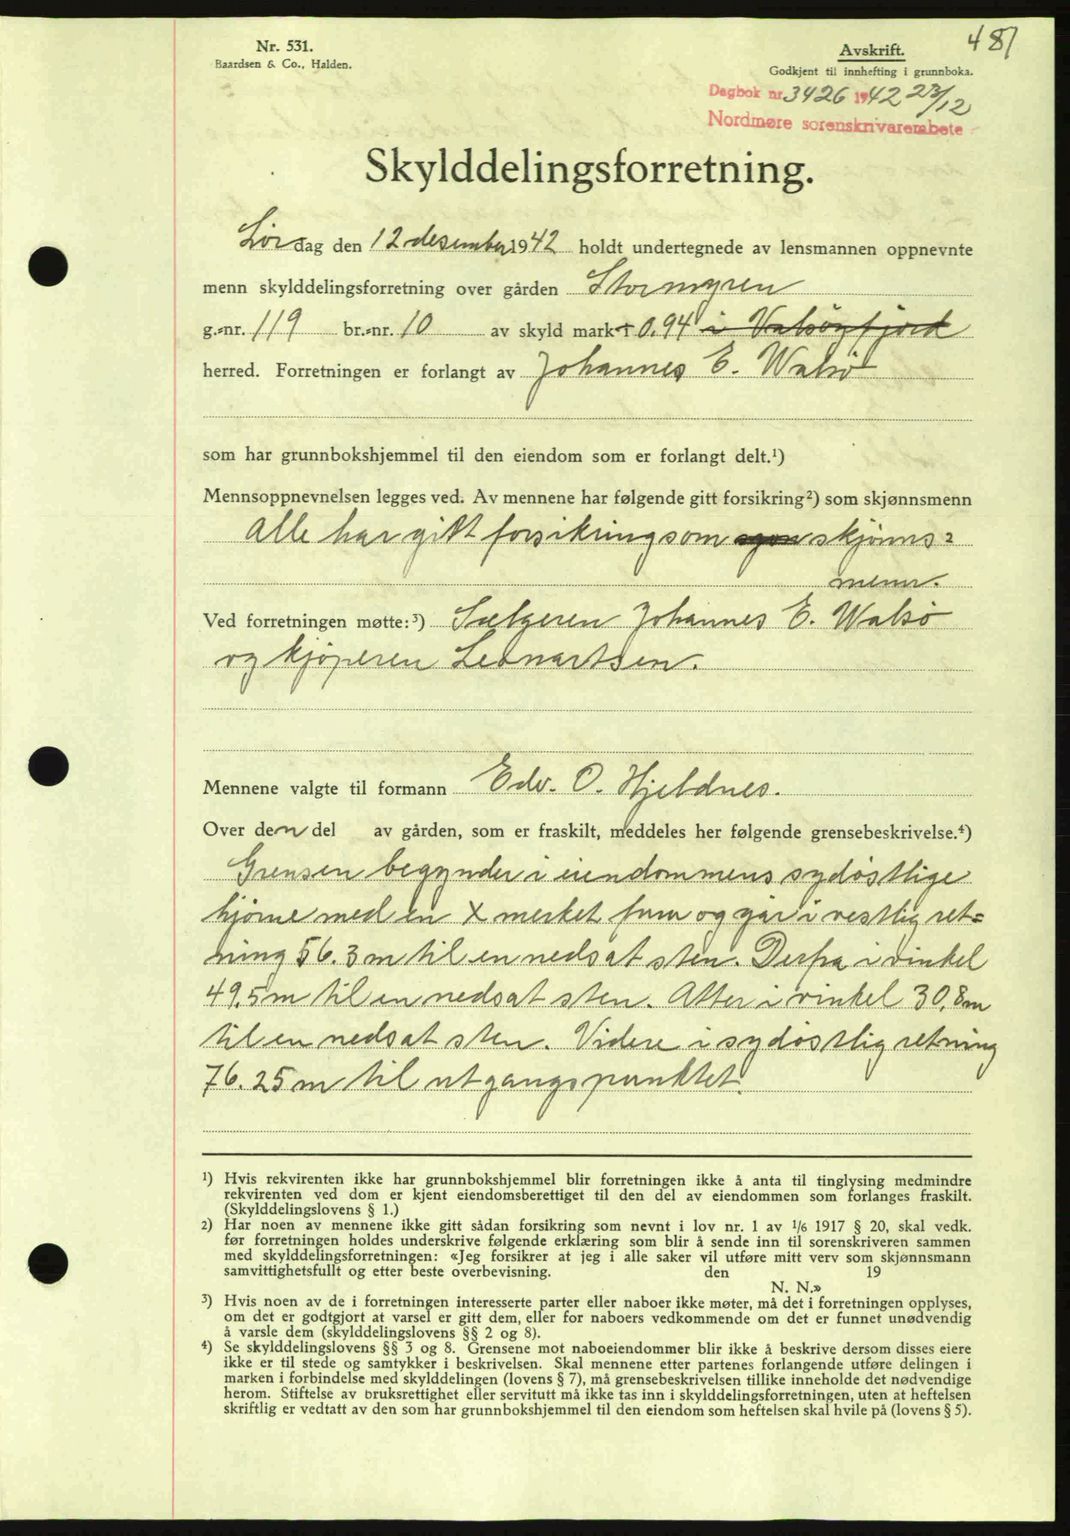 487
Nr. 531.
Baardsen & Co., Halden.
Avskrift.
Godkjent til innhefting i grunnboka.
Dagbok nr. 3426 1942 23/12
Nordmøre sorenskriverembete
Skylddelingsforretning.
Lørdag den 12 desember 1942 holdt undertegnede av lensmannen oppnevnte
menn skylddelingsforretning over gården Stormyren
g.-nr. 119 br.-nr. 10 av skyld mark 0.94 i Valsøyfjord
herred. Forretningen er forlangt av Johannes E. Walsø
som har grunnbokshjemmel til den eiendom som er forlangt delt.¹)
Mennsoppnevnelsen legges ved. Av mennene har følgende gitt forsikring²) som skjønnsmenn
Alle har gitt forsikring som skjønns=
menn.
Ved forretningen møtte:³) Sælgeren Johannes E. Walsø
og kjøperen Leonartsen.
Mennene valgte til formann Edv. O. Hjeldnes.
Over den del av gården, som er fraskilt, meddeles her følgende grensebeskrivelse.⁴)
Grensen begynder i eiendommens sydøstlige
hjørne med en X merket furu og går i vestlig ret=
ning 56.3 m til en nedsat sten. Derfra i vinkel
49,5 m til en nedsat sten. Atter i vinkel 30,8 m
til en nedsat sten. Videre i sydøstlig retning
76.25 m til utgangspunktet.
¹) Hvis rekvirenten ikke har grunnbokshjemmel blir forretningen ikke å anta til tinglysing medmindre
rekvirenten ved dom er kjent eiendomsberettiget til den del av eiendommen som forlanges fraskilt.
(Skylddelingslovens § 1.)
²) Har noen av mennene ikke gitt sådan forsikring som nevnt i lov nr. 1 av 1/6 1917 § 20, skal vedk.
før forretningen holdes underskrive følgende erklæring som blir å sende inn til sorenskriveren sammen
med skylddelingsforretningen: «Jeg forsikrer at jeg i alle saker vil utføre mitt verv som skjønnsmann
samvittighetsfullt og etter beste overbevisning. den 19
N. N.»
³) Hvis noen av de i forretningen interesserte parter eller naboer ikke møter, må det i forretningen opplyses,
om det er godtgjort at varsel er gitt dem, eller for naboers vedkommende om det er funnet unødvendig
å varsle dem (skylddelingslovens §§ 2 og 8).
⁴) Se skylddelingslovens §§ 3 og 8. Grensene mot naboeiendommer blir ikke å beskrive dersom disses eiere
ikke er til stede og samtykker i beskrivelsen. Skal mennene etter partenes forlangende utføre delingen i
marken i forbindelse med skylddelingen (lovens § 7), må grensebeskrivelsen tillike inneholde det nødvendige
herom. Stiftelse av bruksrettighet eller servitutt må ikke tas inn i skylddelingsforretningen, uten at heftelsen
skriftlig er vedtatt av den som har grunnbokshjemmel til den eiendom som heftelsen skal hvile på (lovens § 5).